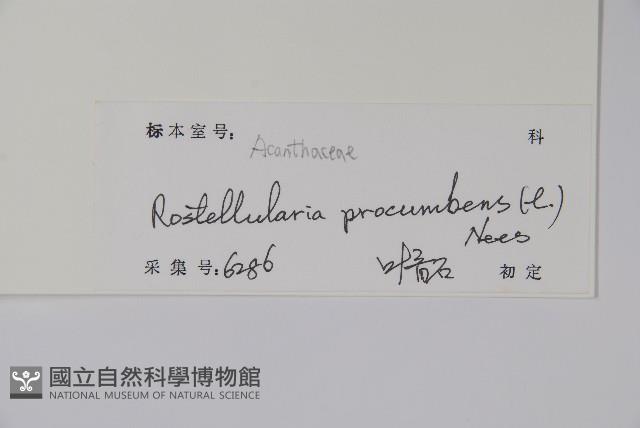 标本室号: 科
Acanthaceae
Rostellularia procumbens (L.)
Nees
采集号: 6286 初定
國立自然科學博物館
NATIONAL MUSEUM OF NATURAL SCIENCE